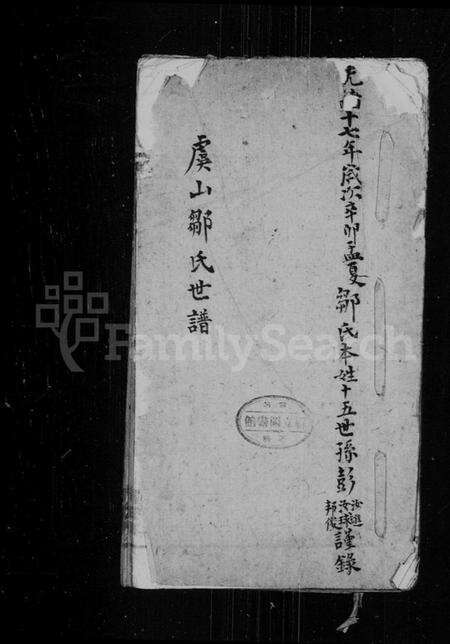 十七年歲次辛卯孟夏鄒氏本姓十五世孫彭
汝球
邦俊
謹錄
虞山鄒氏世譜
FamilySearch